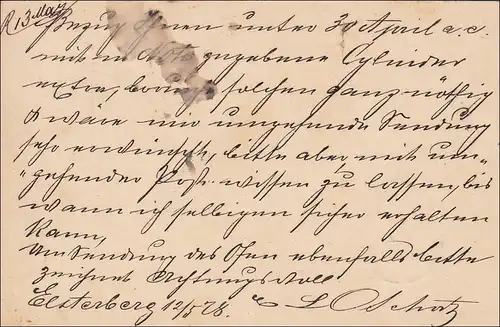 R 13 May
Bezug Ihnen unter 30 April a. c.
mit in Nota gegebene Cylinder
extra, solchen ganz nöthig
& wäre mir umgehende Sendung
sehr erwünscht, bitte aber mit um-
"gehender Post wissen zu lassen, bis
wann ich selbigen sicher erhalten
kann,
Um Sendung des Ofen ebenfalls bitte
zeichnet Achtungsvoll
Elsterberg 12/5 78.